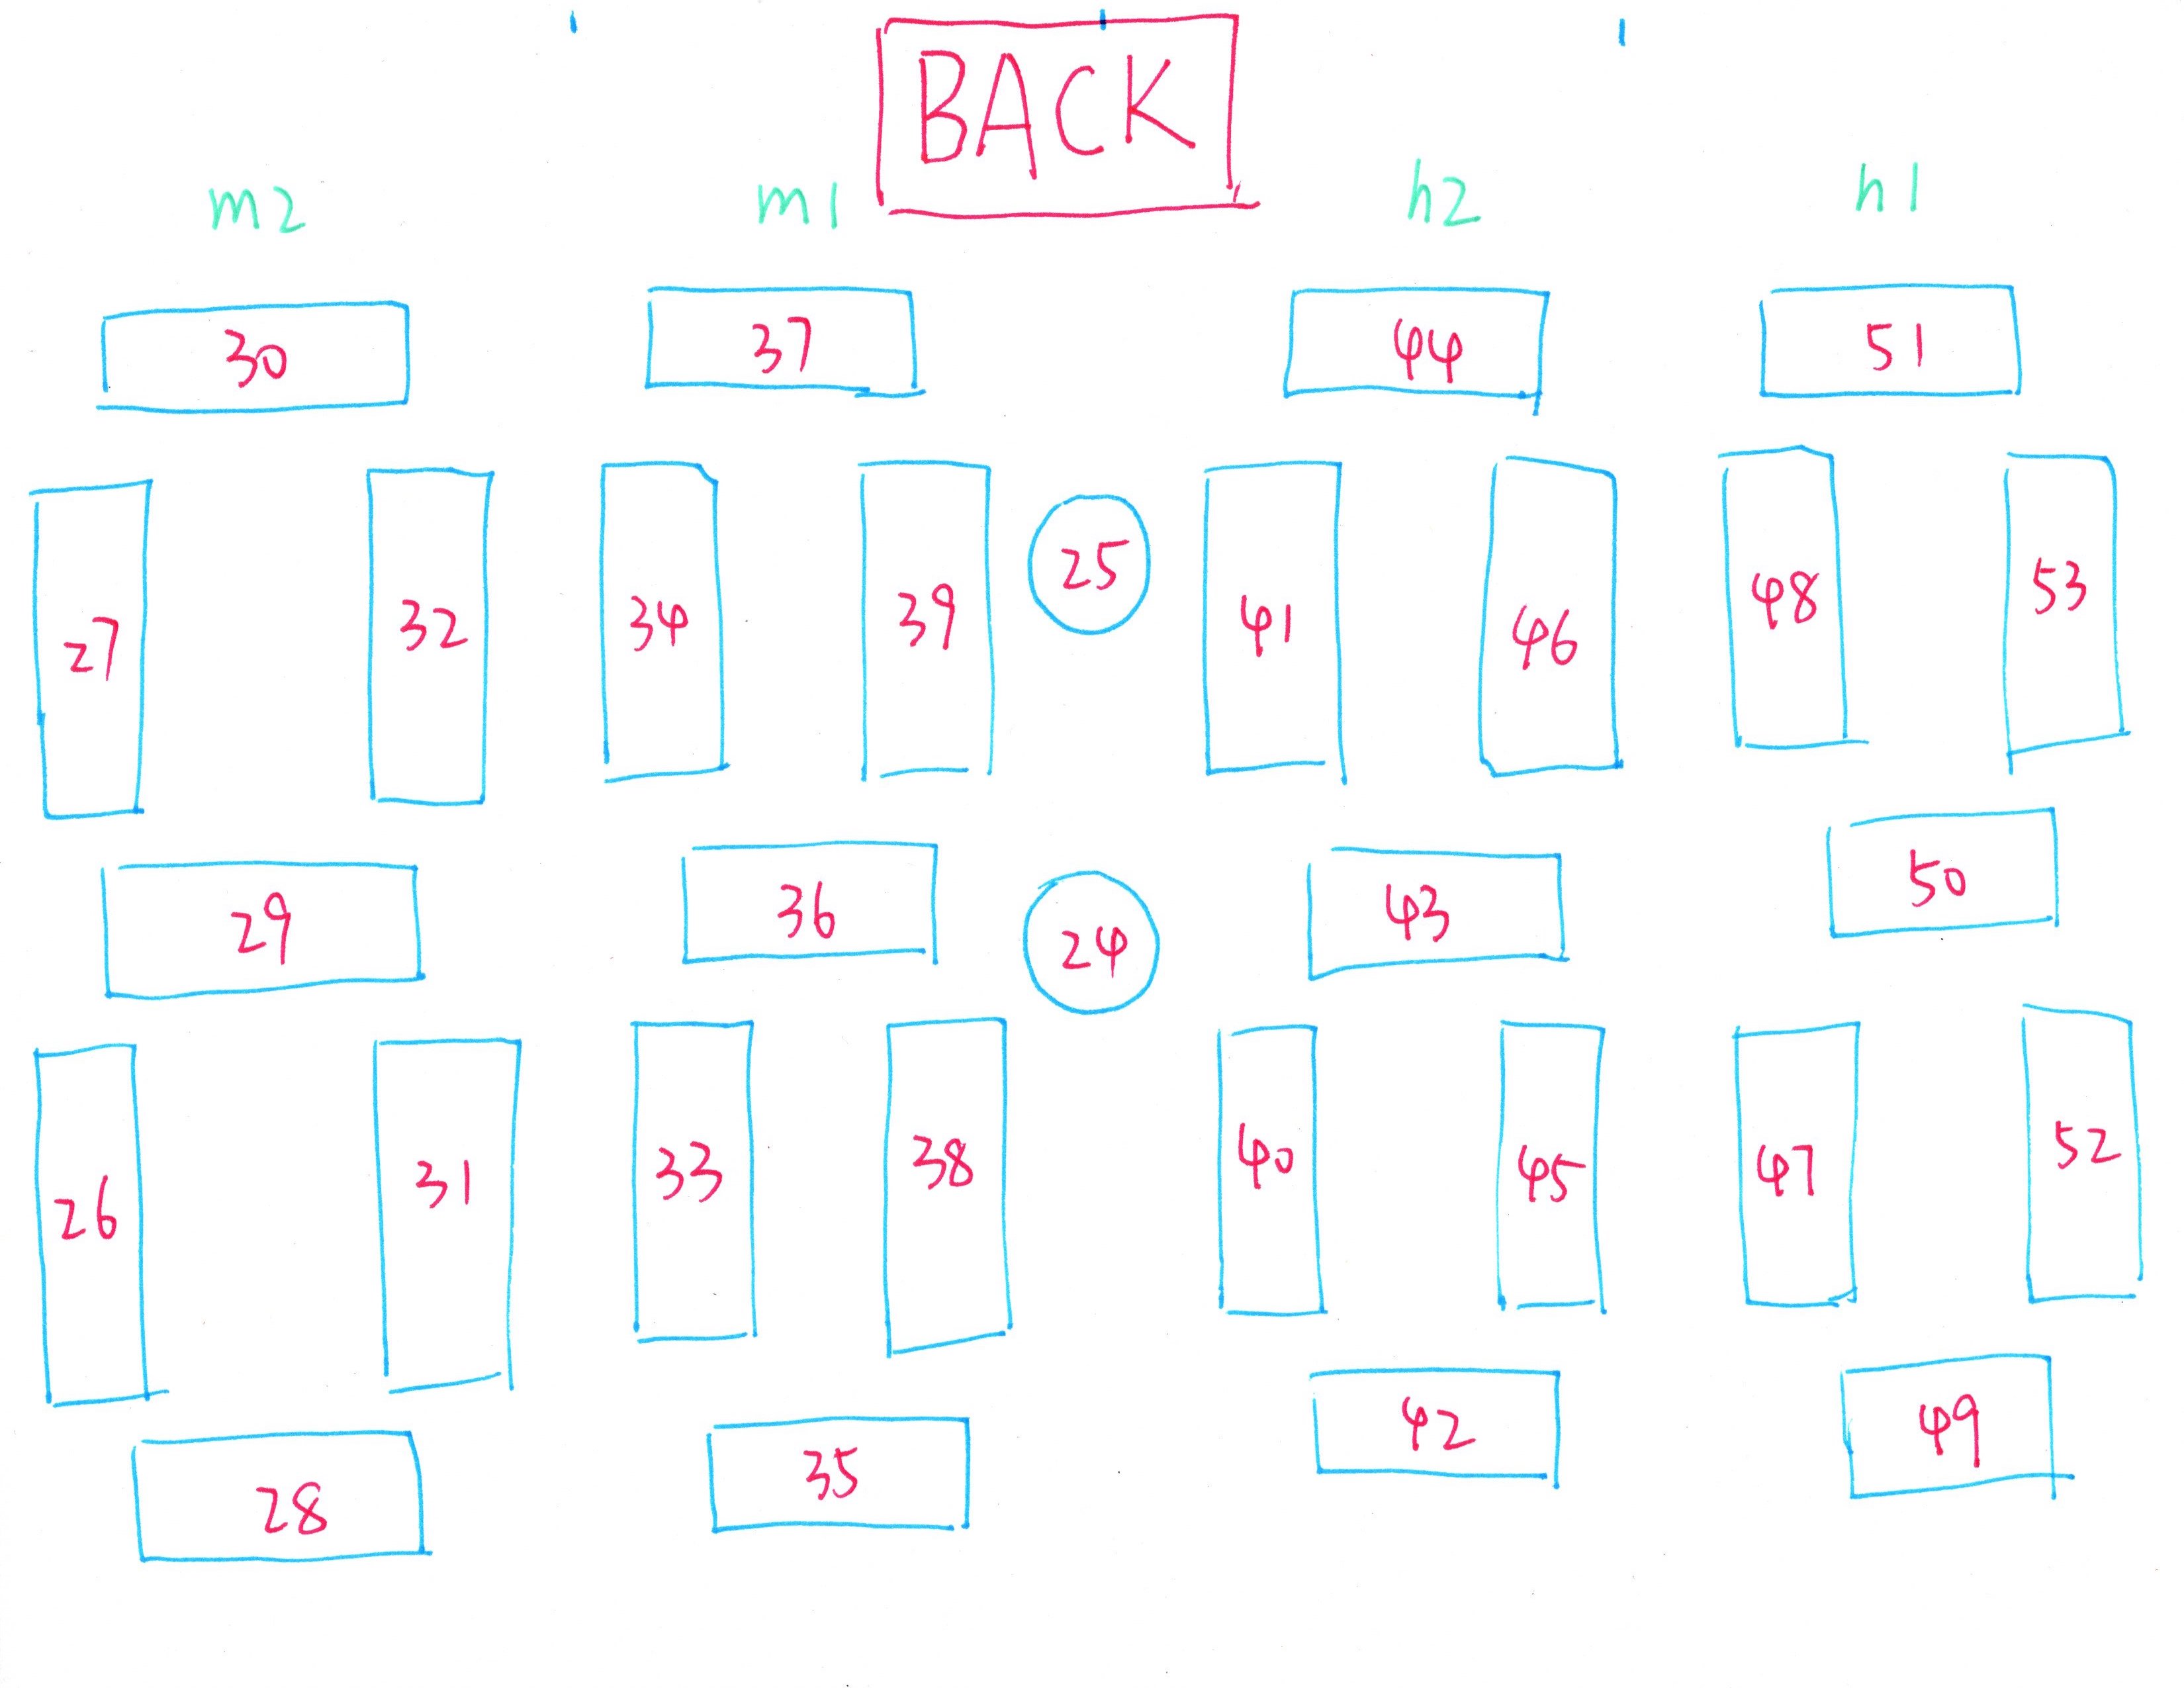 BACK
m2 m1 h2 h1
30 37 44 51
27 32 34 39 25 41 46 48 53
29 36 24 43 50
26 31 33 38 40 45 47 52
28 35 42 49